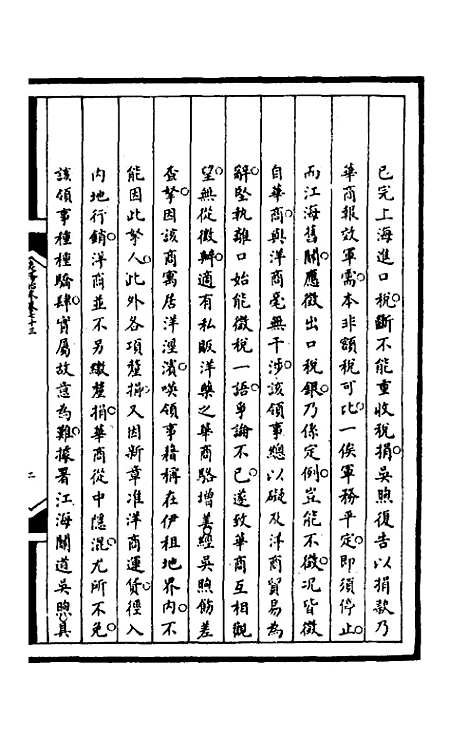 已完上海進口稅斷不能重收稅捐吳煦復告以捐款乃
華商報效軍需本非額稅可比一俟軍務平定即須停止
而江海舊關應徵出口稅銀乃係定例豈能不徵況皆徵
自華商與洋商毫無干涉該領事總以礙及洋商貿易為
辭堅執離口始能徵稅一語爭論不已遂致華商互相觀
望無從徵辦適有私販洋藥之華商駱增善經吳煦飭差
查拏因該商寓居洋涇濱嘆領事藉稱在伊租地界內不
能因此拏人此外各項釐捐又因新章准洋商運貨徑入
內地行銷洋商並不另繳釐捐華商從中隱混尤所不免
該領事種種驕肆實屬故意為難據署江海關道吳煦具
二